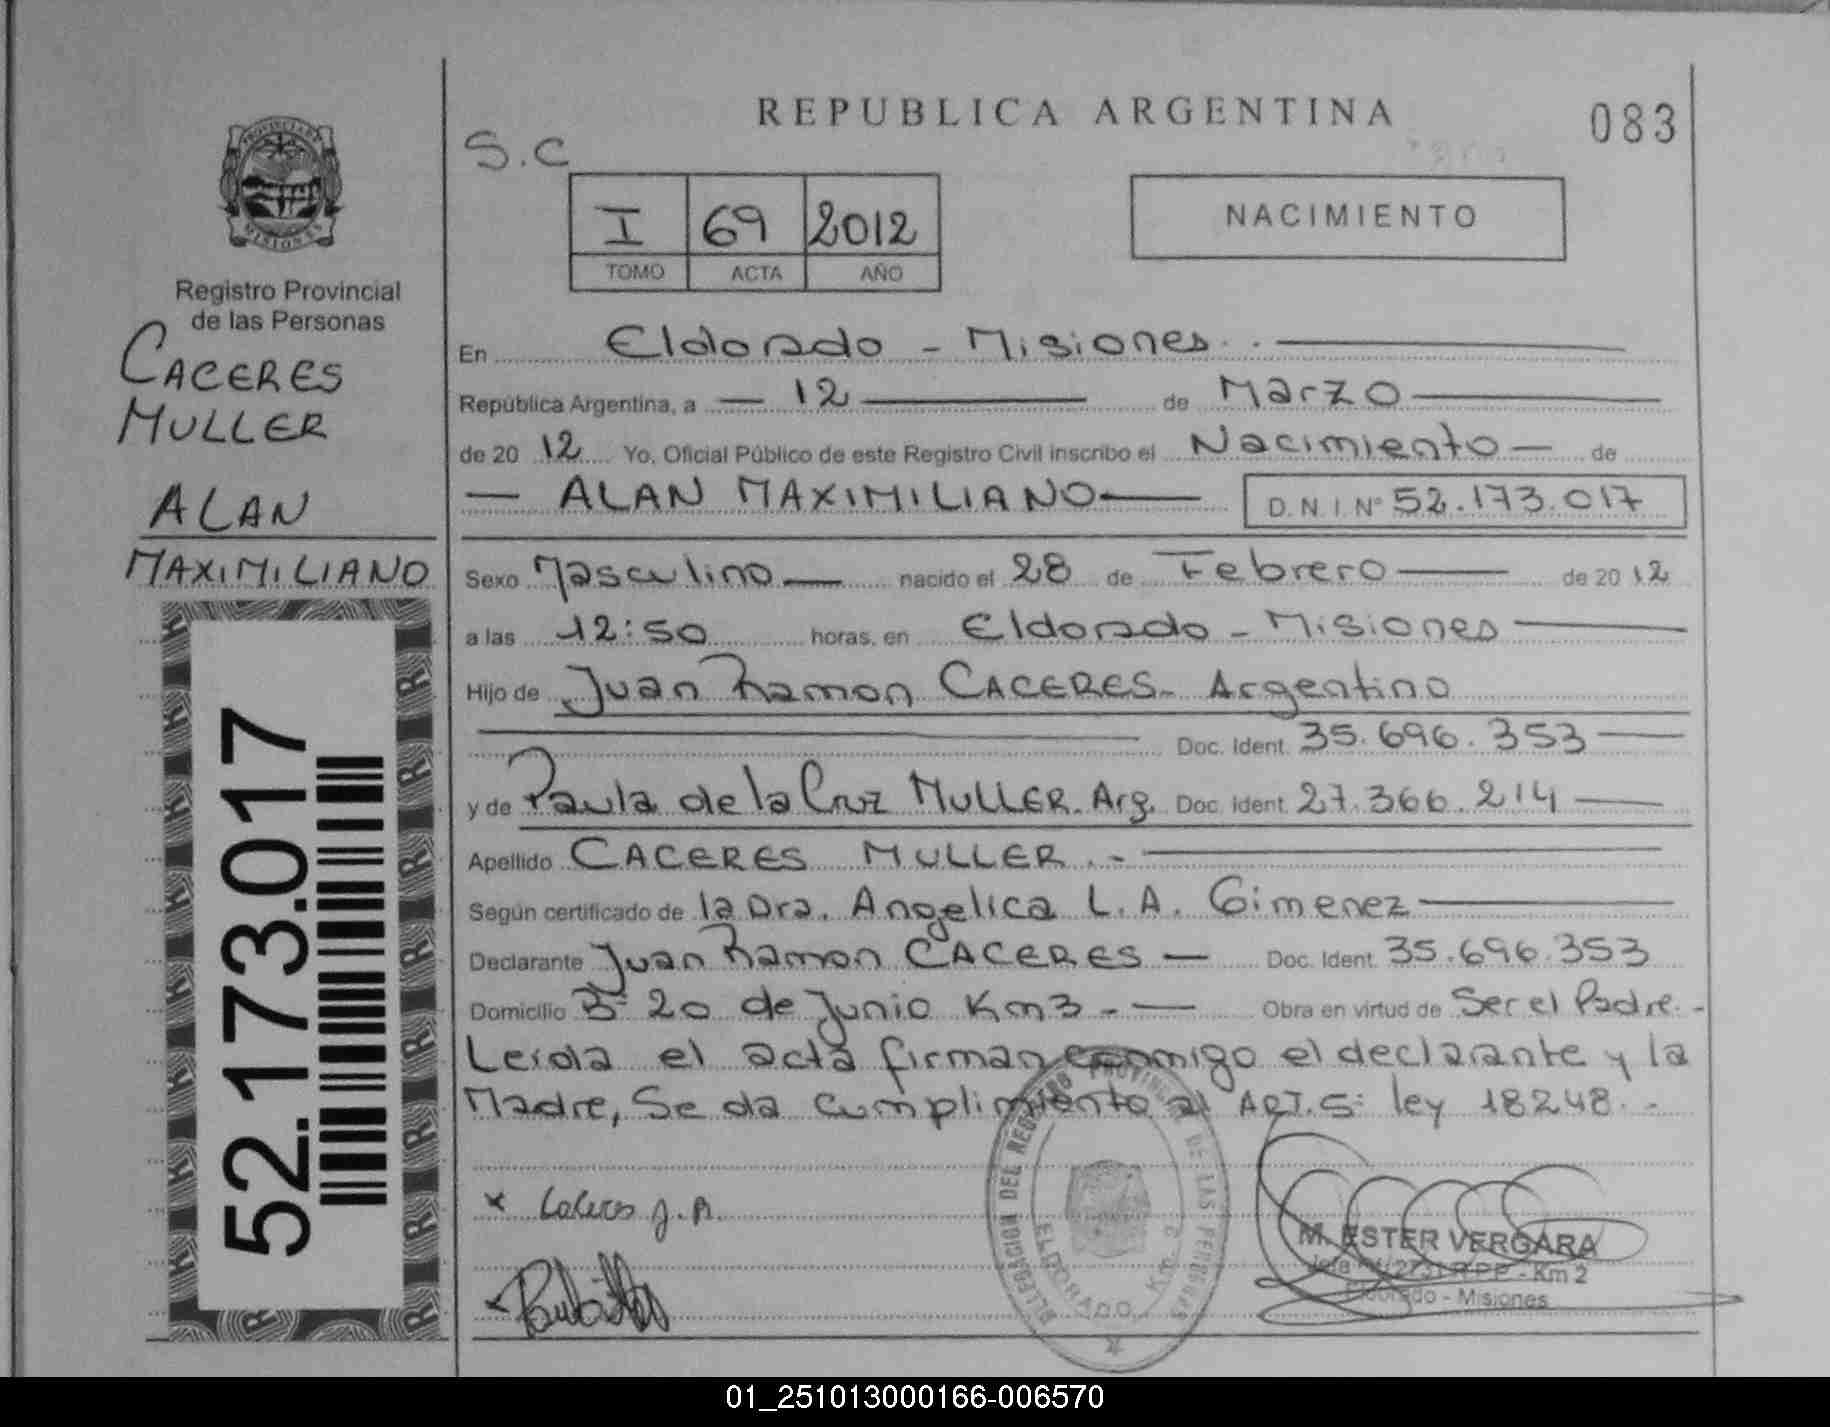 REPUBLICA ARGENTINA
083
S.C
I 69 2012
TOMO ACTA AÑO
NACIMIENTO
PROVINCIA DE MISIONES
Registro Provincial
de las Personas
CACERES
MULLER
ALAN
MAXIMILIANO
52.173.017
En Eldorado - Misiones.
República Argentina, a 12 de Marzo
de 20 12 Yo, Oficial Público de este Registro Civil inscribo el Nacimiento de
ALAN MAXIMILIANO D.N.I. Nº 52.173.017
Sexo Masculino nacido el 28 de Febrero de 20 12
a las 12:50 horas, en Eldorado - Misiones
Hijo de Juan Ramon CACERES - Argentino
Doc. Ident. 35.696.353
y de Paula de la Cruz MULLER. Arg. Doc. Ident. 27.366.214
Apellido CACERES MULLER.-
Según certificado de la Dra. Angelica L.A. Gimenez
Declarante Juan Ramon CACERES Doc. Ident. 35.696.353
Domicilio Bº 20 de Junio Km3 - Obra en virtud de Ser el Padre.-
Leida el acta firman conmigo el declarante y la
Madre, Se da cumplimiento al ART. 5: ley 18248.-
x Caceres J.R.
DELEGACION DEL REGISTRO PROVINCIAL DE LAS PERSONAS
ELDORADO Km 2
M. ESTER VERGARA
R.P.P. - Km 2
Eldorado - Misiones
01_251013000166-006570